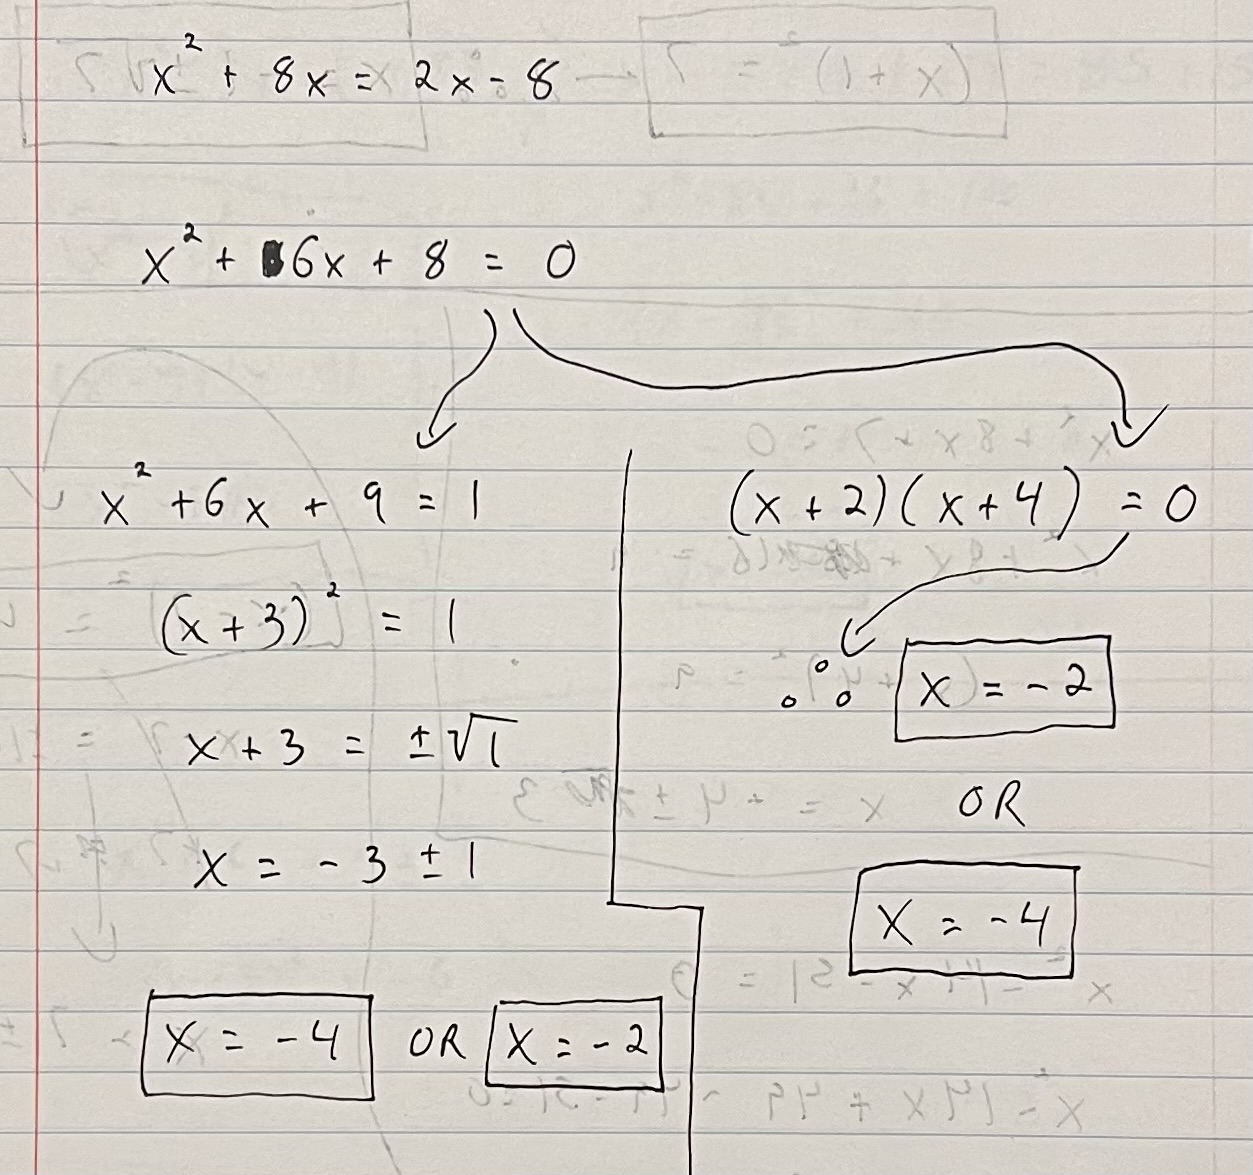 x² + 8x = 2x - 8
x² + 6x + 8 = 0
x² + 6x + 9 = 1
(x + 3)² = 1
x + 3 = ±√1
x = - 3 ± 1
x = - 4 OR x = - 2
(x + 2)(x + 4) = 0
∴ x = - 2
OR
x = - 4